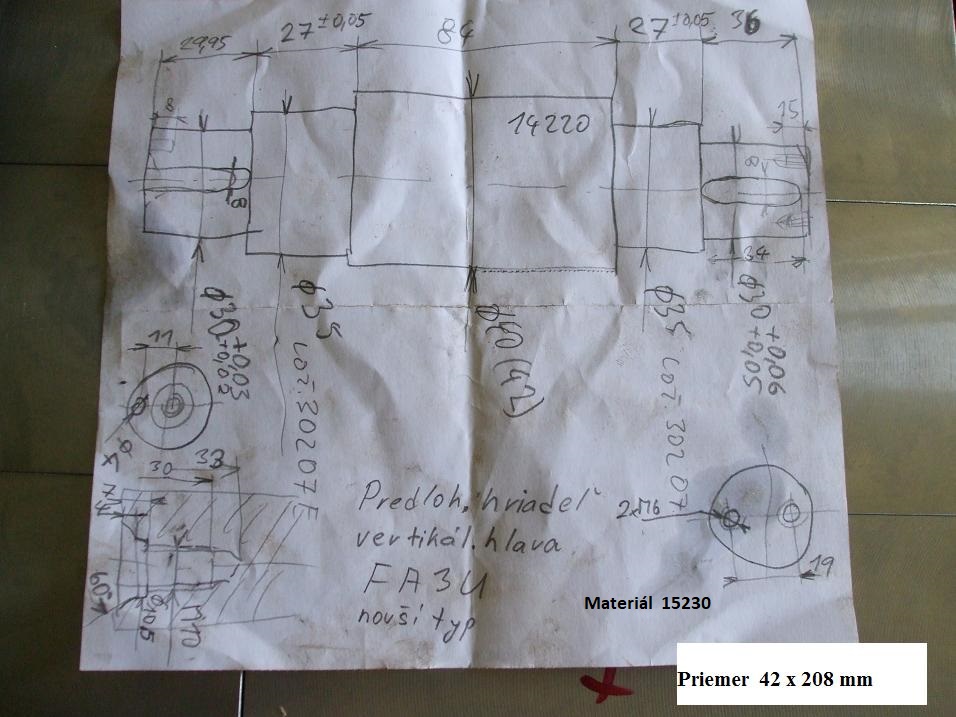 29,95
27 ±0,05
84
27 ±0,05
36
8
14220
15
8
8
34
ø30 +0,03 +0,02
ø35
lož. 30207E
ø40 (42)
ø35
lož. 30207
ø30 +0,06 +0,05
11
ø4
30
33
60°
ø10,5
M10
Predloh. hriadeľ
vertikál. hlava
FA3U
novší typ
2xM6
19
Materiál 15230
Priemer 42 x 208 mm